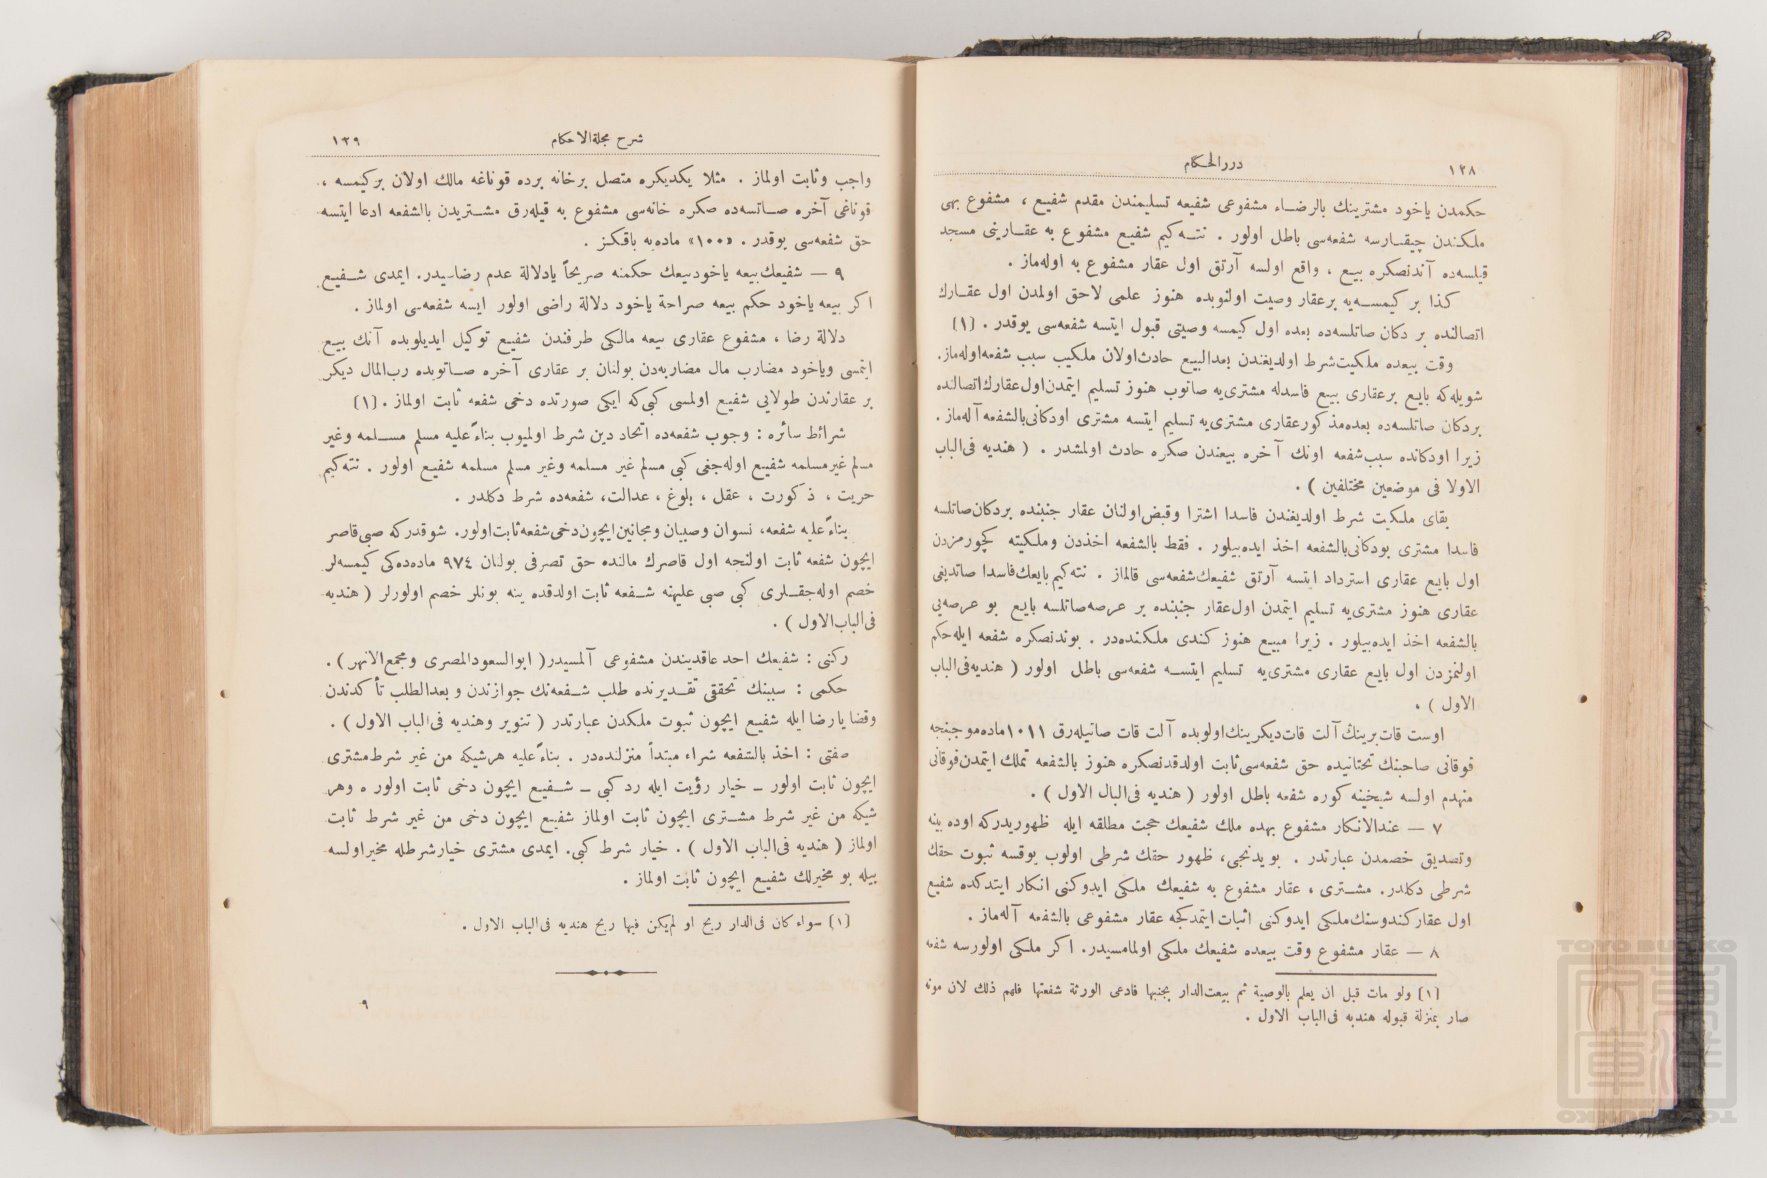 ١٢٨
دررالحكام
حكمدن ياخود مشترينك بالرضاء مشفوعى شفيعه تسليمندن مقدم شفيع ، مشفوع بهى
ملكندن چيقارسه شفعه‌سى باطل اولور . نته‌كيم شفيع مشفوع به عقارينى مسجد
قيلسه‌ده آندنصكره بيع ، واقع اولسه آرتق اول عقار مشفوع به اوله‌ماز .
كذا بر كيمسه‌يه برعقار وصيت اولنوبده هنوز علمى لاحق اولمدن اول عقارك
اتصالنده بر دكان صاتلسه‌ده بعده اول كيمسه وصيتى قبول ايتسه شفعه‌سى يوقدر . [١]
وقت بيعده ملكيت‌شرط اولديغندن بعدالبيع حادث‌اولان ملكيت سبب شفعه‌اوله‌ماز.
شويله‌كه بايع برعقارى بيع فاسدله مشترى‌يه صاتوب هنوز تسليم ايتمدن‌اول‌عقارك‌اتصالنده
بردكان صاتلسه‌ده بعده‌مذكورعقارى مشترى‌يه تسليم ايتسه مشترى اودكانى‌بالشفعه آله‌ماز .
زيرا اودكانده سبب‌شفعه اونك آخره بيعندن صكره حادث اولمشدر . ( هنديه فى‌الباب
الاولا فى موضعين مختلفين ) .
بقاى ملكيت شرط اولديغندن فاسدا اشترا وقبض‌اولنان عقار جنبنده بردكان‌صاتلسه
فاسدا مشترى بودكانى‌بالشفعه اخذ ايده‌بيلور . فقط بالشفعه اخذدن وملكيته كچورمزدن
اول بايع عقارى استرداد ايتسه آرتق شفيعك‌شفعه‌سى قالماز . نته‌كيم‌بايعك‌فاسدا صاتديغى
عقارى هنوز مشترى‌يه تسليم ايتمدن اول‌عقار جنبنده بر عرصه‌صاتلسه بايع بو عرصه‌يى
بالشفعه اخذ ايده‌بيلور . زيرا مبيع هنوز كندى ملكنده‌در . بوندنصكره شفعه ايله‌حكم
اولنمزدن اول بايع عقارى مشترى‌يه تسليم ايتسه شفعه‌سى باطل اولور ( هنديه‌فى‌الباب
الاول ) .
اوست قات‌برينك آلت قات‌ديكرينك‌اولوبده آلت قات صاتيله‌رق ١٠١١ماده‌موجبنجه
فوقانى صاحبنك تحتانيده حق شفعه‌سى‌ثابت اولدقدنصكره هنوز بالشفعه تملك ايتمدن‌فوقانى
منهدم اولسه شيخينه كوره شفعه باطل اولور ( هنديه فى‌البال الاول ) .
٧ — عندالانكار مشفوع بهده ملك شفيعك حجت مطلقه ايله ظهوريدركه اوده بينه
وتصديق خصمدن عبارتدر . بويدنجى، ظهور حقك شرطى اولوب يوقسه ثبوت حقك
شرطى دكلدر. مشترى ، عقار مشفوع به شفيعك ملكى ايدوكنى انكار ايتدكده شفيع
اول عقاركندوسنك‌ملكى ايدوكنى اثبات ايتمدكجه عقار مشفوعى بالشفعه آله‌ماز .
٨ — عقار مشفوع وقت بيعده شفيعك ملكى اولمامسيدر. اكر ملكى اولورسه شفعه
[١] ولو مات قبل ان يعلم بالوصية ثم بيعت‌الدار بجنبها فادعى الورثة شفعتها فلهم ذلك لان موته
صار بمنزلة قبوله هنديه فى‌الباب الاول .
شرح مجلة‌الاحكام
١٢٩
واجب وثابت اولماز . مثلا يكديكره متصل برخانه برده قوناغه مالك اولان بركيمسه ،
قوناغى آخره صاتسه‌ده صكره خانه‌سى مشفوع به قيله‌رق مشتريدن بالشفعه ادعا ايتسه
حق شفعه‌سى يوقدر . «١٠٠» ماده‌يه باقكز .
٩ — شفيعك‌بيعه ياخودبيعك حكمنه صريحاً يادلالة عدم رضاسيدر. ايمدى شفيع
اكر بيعه ياخود حكم بيعه صراحة ياخود دلالة راضى اولور ايسه شفعه‌سى اولماز .
دلالة رضا ، مشفوع عقارى بيعه مالكى طرفندن شفيع توكيل ايديلوبده آنك بيع
ايتمسى وياخود مضارب مال مضاربه‌دن بولنان بر عقارى آخره صاتوبده رب‌المال ديكر
بر عقارندن طولايى شفيع اولمسى كبى‌كه ايكى صورتده دخى شفعه ثابت اولماز . [١]
شرائط سائره : وجوب شفعه‌ده اتحاد دين شرط اولميوب بناءً‌عليه مسلم مسلمه وغير
مسلم غيرمسلمه شفيع اوله‌جغى كبى مسلم غير مسلمه وغير مسلم مسلمه شفيع اولور . نته‌كيم
حريت ، ذكورت ، عقل ، بلوغ ، عدالت، شفعه‌ده شرط دكلدر .
بناءً‌عليه شفعه، نسوان وصبيان ومجانين‌ايچون‌دخى‌شفعه‌ثابت‌اولور. شوقدركه صبى‌قاصر
ايچون شفعه ثابت اولنجه اول قاصرك مالنده حق تصرفى بولنان ٩٧٤ ماده‌ده‌كى كيمسه‌لر
خصم اوله‌جقلرى كبى صبى عليهنه شفعه ثابت اولدقده ينه بونلر خصم اولورلر ( هنديه
فى‌الباب‌الاول ) .
ركنى : شفيعك احد عاقديندن مشفوعى آلمسيدر( ابوالسعودالمصرى ومجمع‌الانهر) .
حكمى : سببنك تحققى تقديرنده طلب شفعه‌نك جوازندن و بعدالطلب تأكدندن
وقضا يا رضا ايله شفيع ايچون ثبوت ملكدن عبارتدر ( تنوير وهنديه فى‌الباب الاول ) .
صفتى : اخذ بالشفعه شراء مبتدأ منزلنده‌در . بناءً‌عليه هرشيكه من غير شرط‌مشترى
ايچون ثابت اولور ــ خيار رؤيت ايله رد كبى ــ شفيع ايچون دخى ثابت اولور ه وهر
شيكه من غير شرط مشترى ايچون ثابت اولماز شفيع ايچون دخى من غير شرط ثابت
اولماز ( هنديه فى‌الباب الاول ) . خيار شرط كبى. ايمدى مشترى خيارشرطله مخيراولسه
بيله بو مخيرلك شفيع ايچون ثابت اولماز .
[١] سواء كان فى‌الدار ربح او لم‌يكن فيها ربح هنديه فى‌الباب الاول .
٩
TOYO BUNKO